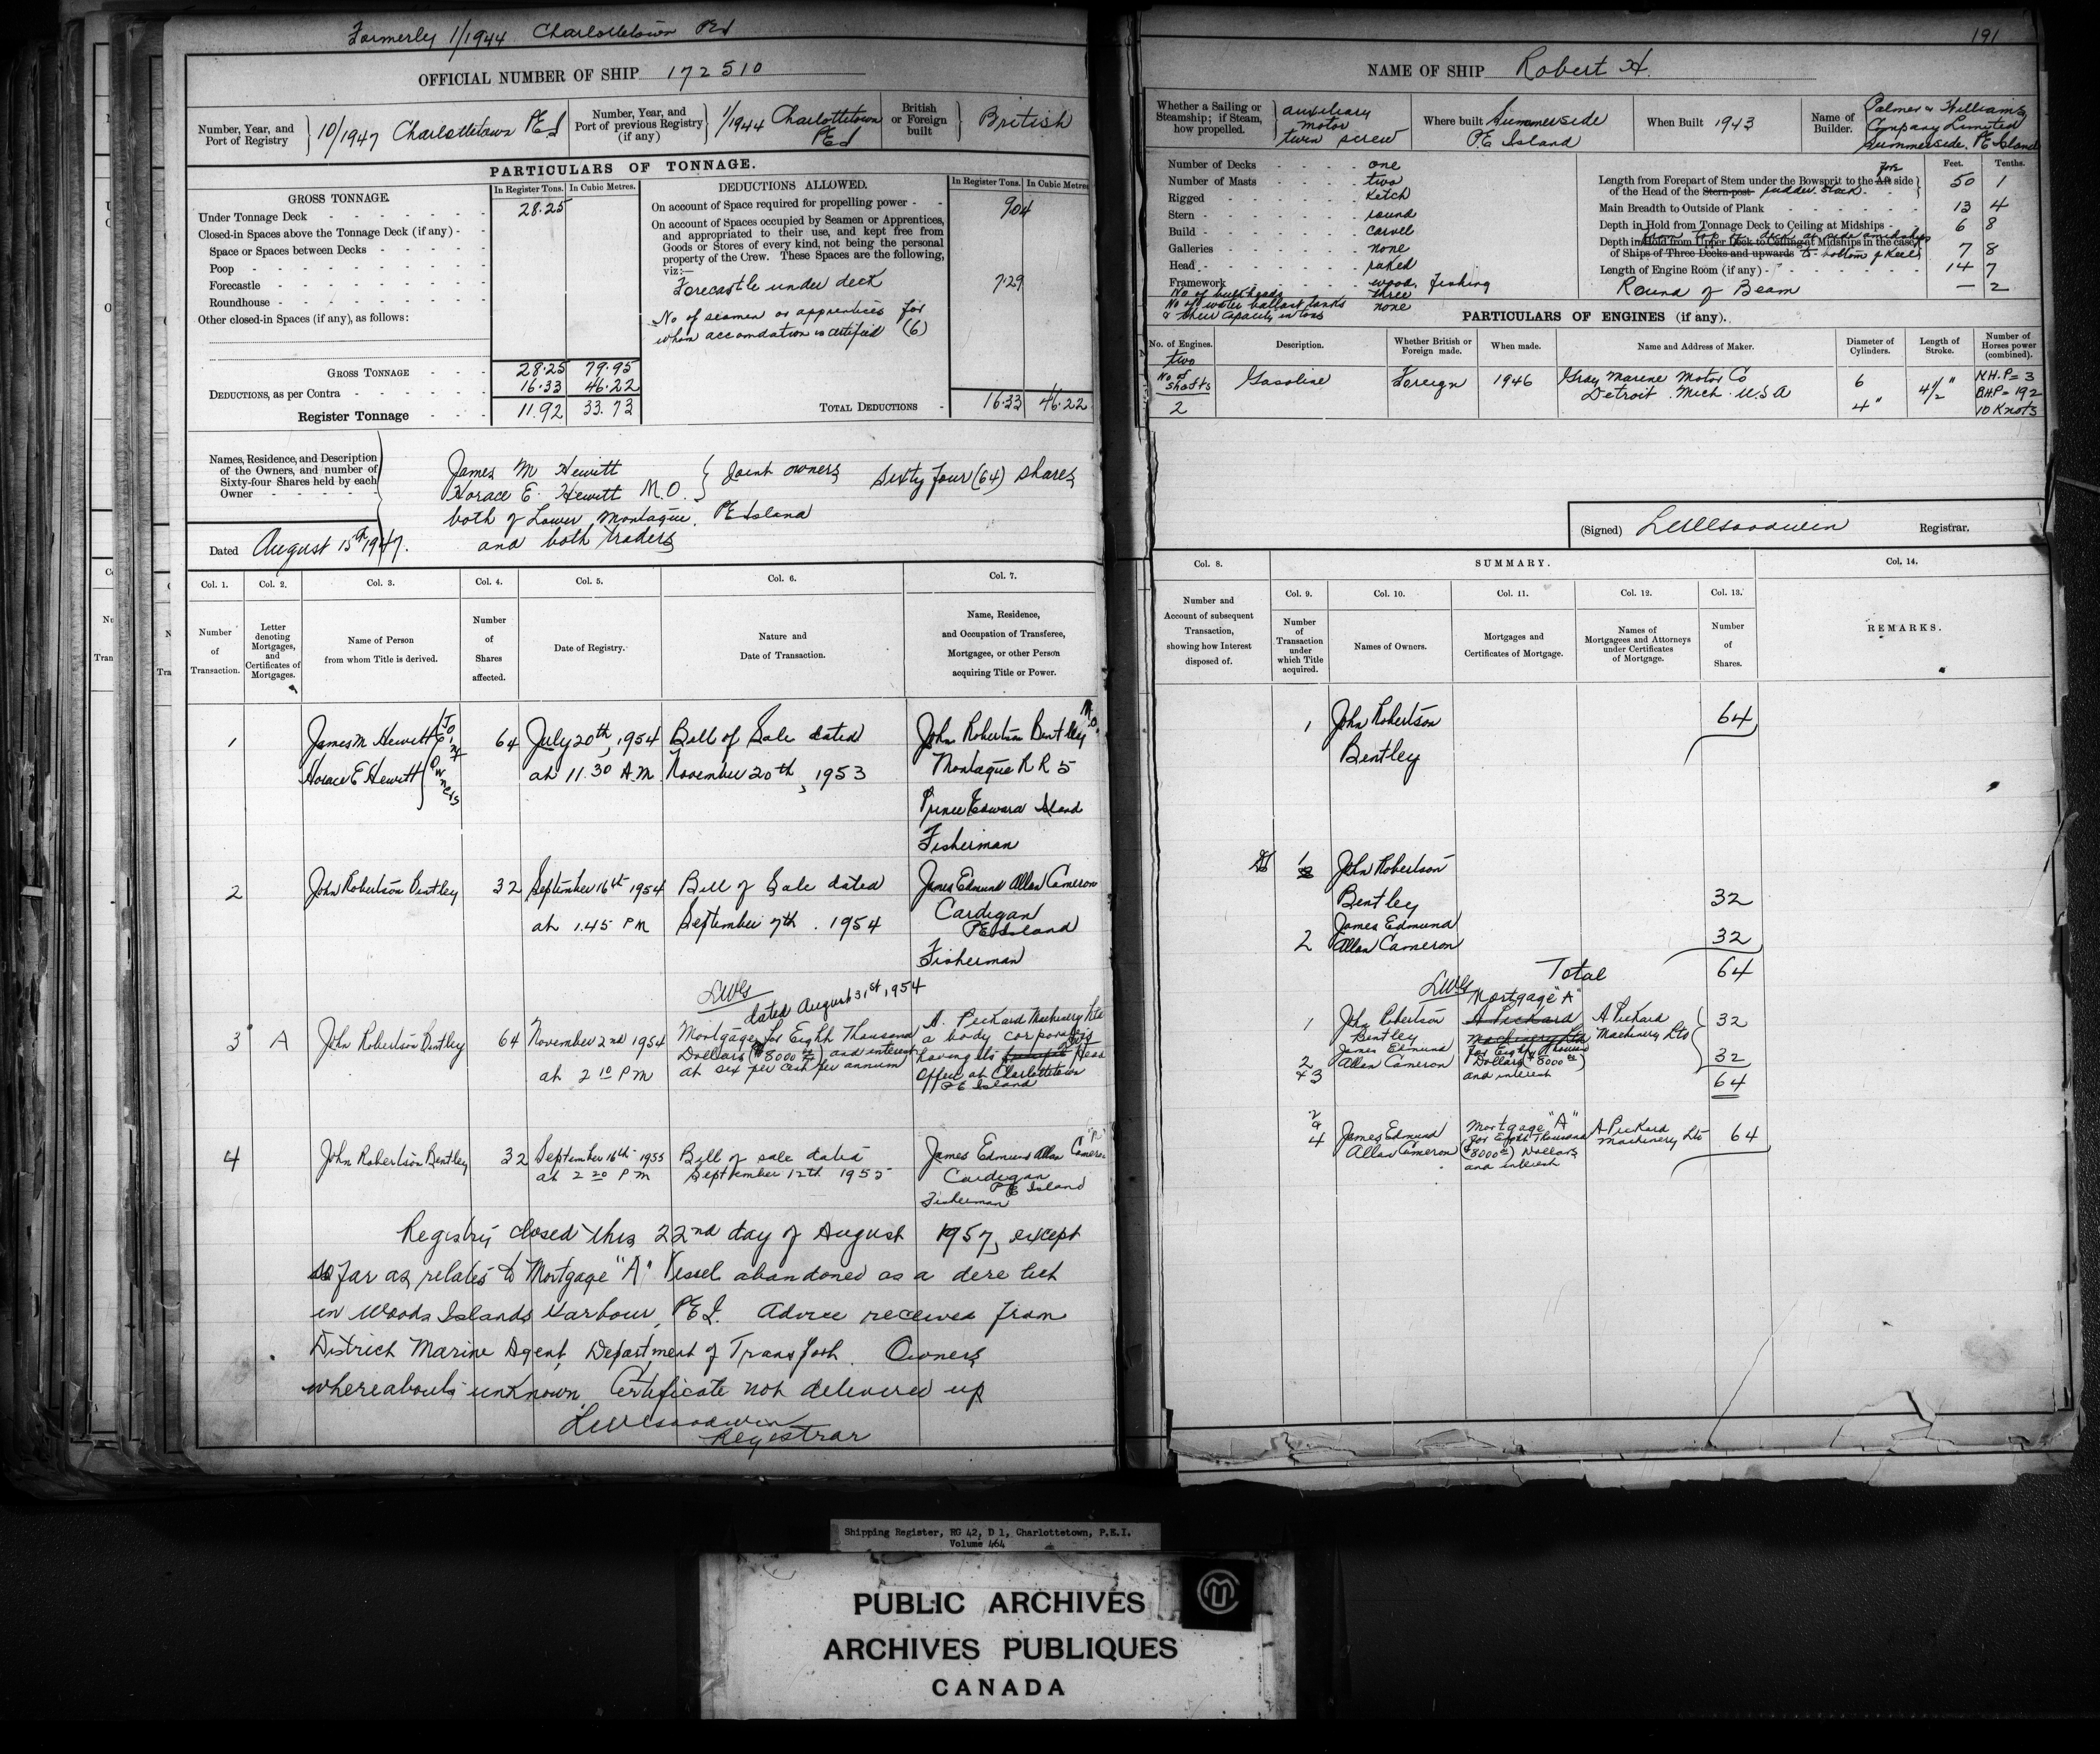 Formerly 1/1944 Charlottetown PEI
OFFICIAL NUMBER OF SHIP 172510
Number, Year, and Port of Registry } 10/1947 Charlottetown PEI
Number, Year, and Port of previous Registry (if any) } 1/1944 Charlottetown PEI
British or Foreign built } British
PARTICULARS OF TONNAGE.
GROSS TONNAGE. In Register Tons. In Cubic Metres.
Under Tonnage Deck 28.25
Closed-in Spaces above the Tonnage Deck (if any)
Space or Spaces between Decks
Poop
Forecastle
Roundhouse
Other closed-in Spaces (if any), as follows:
GROSS TONNAGE 28.25 79.95
DEDUCTIONS, as per Contra 16.33 46.22
Register Tonnage 11.92 33.73
DEDUCTIONS ALLOWED. In Register Tons. In Cubic Metres
On account of Space required for propelling power 904
On account of Spaces occupied by Seamen or Apprentices,
and appropriated to their use, and kept free from
Goods or Stores of every kind, not being the personal
property of the Crew. These Spaces are the following,
viz:—
Forecastle under deck 7.29
No of seamen or apprentices for
whom accomdation is certified (6)
TOTAL DEDUCTIONS 16.33 46.22
Names, Residence, and Description
of the Owners, and number of
Sixty-four Shares held by each
Owner
James M Hewitt
Horace E. Hewitt M.O. } Joint owners Sixty four (64) shares
both of Lower Montague, PE Island
and both traders
Dated August 15th 1947.
Col. 1. Col. 2. Col. 3. Col. 4. Col. 5. Col. 6. Col. 7.
Number of Transaction.
Letter denoting Mortgages, and Certificates of Mortgages.
Name of Person from whom Title is derived.
Number of Shares affected.
Date of Registry.
Nature and Date of Transaction.
Name, Residence, and Occupation of Transferee, Mortgagee, or other Person acquiring Title or Power.
1 James M Hewitt Horace E Hewitt } Joint Owners 64 July 20th, 1954 at 11.30 A.M. Bill of Sale dated November 20th, 1953 John Robertson Bentley M.O. Montague R R 5 Prince Edward Island Fisherman
2 John Robertson Bentley 32 September 16th 1954 at 1.45 PM Bill of Sale dated September 7th. 1954 James Edmund Allan Cameron Cardigan PE Island Fisherman
LWG
dated August 31st, 1954
3 A John Robertson Bentley 64 November 2nd 1954 at 2 10 PM Mortgage for Eight Thousand Dollars ($8000 00) and interest at six per cent per annum A. Pickard Machinery Ltd a body corporate having its Head Office at Charlottetown PE Island
4 John Robertson Bentley 32 September 16th 1955 at 2 20 PM Bill of sale dated September 12th 1955 James Edmund Allan Cameron Cardigan PE Island Fisherman
Registry closed this 22nd day of August 1957, except
so far as relates to Mortgage "A" Vessel abandoned as a derelict
in Woods Islands Harbour, PEI. Advice received from
District Marine Agent, Department of Transport. Owners
whereabouts unknown. Certificate not delivered up
LWGoodwin
Registrar
191
NAME OF SHIP Robert H.
Whether a Sailing or Steamship; if Steam, how propelled. } auxiliary motor twin screw
Where built Summerside P.E Island
When Built 1943
Name of Builder. Palmer & Williams Company Limited Summerside. PE Island
Number of Decks one
Number of Masts two
Rigged Ketch
Stern round
Build carvel
Galleries none
Head raked
Framework wood, fishing
No of bulkheads three
No of water ballast tanks & their capacity in tons none
Feet. Tenths.
Length from Forepart of Stem under the Bowsprit to the Aft fore side of the Head of the Stern-post rudder stock 50 1
Main Breadth to Outside of Plank 13 4
Depth in Hold from Tonnage Deck to Ceiling at Midships 6 8
Depth in Hold from Upper Deck to Ceiling at Midships in the case of Ships of Three Decks and upwards from top of deck at side amidships to bottom of keel 7 8
Length of Engine Room (if any) 14 7
Round of Beam — 2
PARTICULARS OF ENGINES (if any).
No. of Engines. Description. Whether British or Foreign made. When made. Name and Address of Maker. Diameter of Cylinders. Length of Stroke. Number of Horses power (combined).
two
No of shafts
2
Gasoline Foreign 1946 Gray Marine Motor Co Detroit. Mich. U.S.A 6 4" 4 1/2" N.H.P = 3 B.H.P = 192 10 Knots
(Signed) LWGoodwin Registrar.
Col. 8. SUMMARY. Col. 14.
Number and Account of subsequent Transaction, showing how Interest disposed of.
Col. 9. Col. 10. Col. 11. Col. 12. Col. 13.
Number of Transaction under which Title acquired.
Names of Owners.
Mortgages and Certificates of Mortgage.
Names of Mortgagees and Attorneys under Certificates of Mortgage.
Number of Shares.
REMARKS.
1 John Robertson Bentley 64
1 John Robertson Bentley 32
2 James Edmund Allan Cameron 32
Total 64
LWG
1 John Robertson Bentley Mortgage "A" A Pickard Machinery Ltd for Eight Thousand Dollars ($8000 00) and interest A Pickard Machinery Ltd 32
2 & 3 James Edmund Allan Cameron 32
64
2 & 4 James Edmund Allan Cameron Mortgage "A" for Eight Thousand ($8000 00) Dollars and interest A Pickard Machinery Ltd 64
Shipping Register, RG 42, D 1, Charlottetown, P.E.I.
Volume 464
PUBLIC ARCHIVES
ARCHIVES PUBLIQUES
CANADA